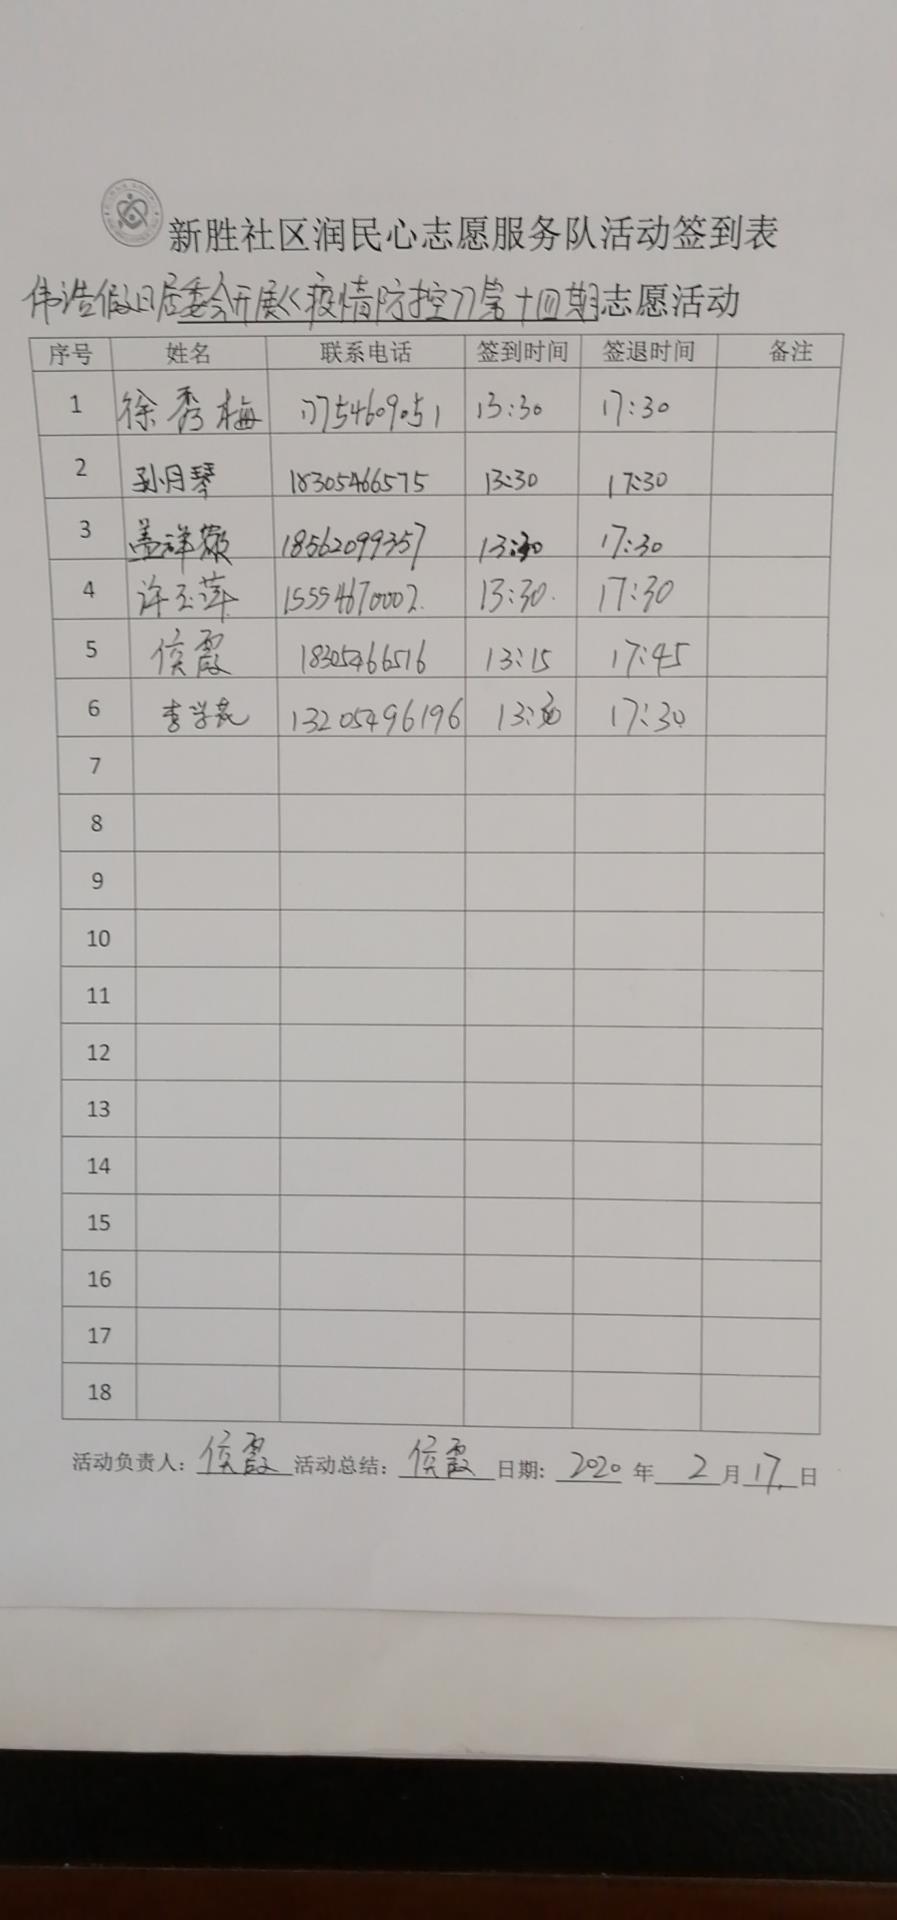 新胜社区润民心志愿服务队活动签到表
伟浩假日居委会开展《疫情防控》第十四期志愿活动
序号 姓名 联系电话 签到时间 签退时间 备注
1 徐秀梅 17754609051 13:30 17:30
2 孙月琴 18305466575 13:30 17:30
3 盖祥 18562099357 13:30 17:30
4 许玉萍 15554670002 13:30 17:30
5 侯霞 18305466516 13:15 17:45
6 李 13205496196 13:30 17:30
7
8
9
10
11
12
13
14
15
16
17
18
活动负责人: 侯霞 活动总结: 侯霞 日期: 2020 年 2 月 17 日